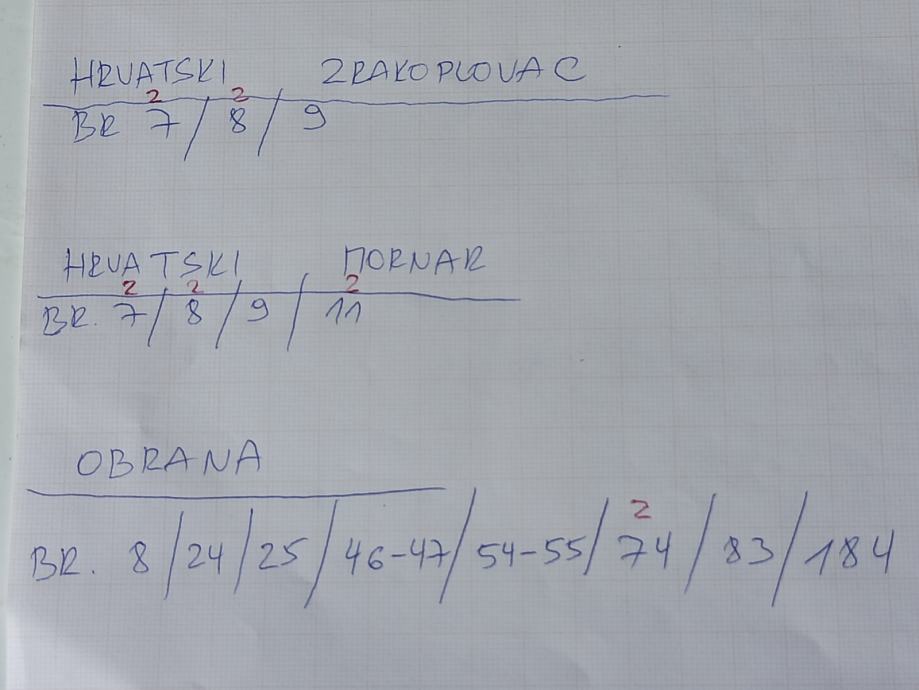 HRVATSKI ZRAKOPLOVAC
2 2
BR 7 / 8 / 9
HRVATSKI MORNAR
2 2 2
BR. 7 / 8 / 9 / 11
OBRANA
2
BR. 8 / 24 / 25 / 46-47 / 54-55 / 74 / 83 / 184